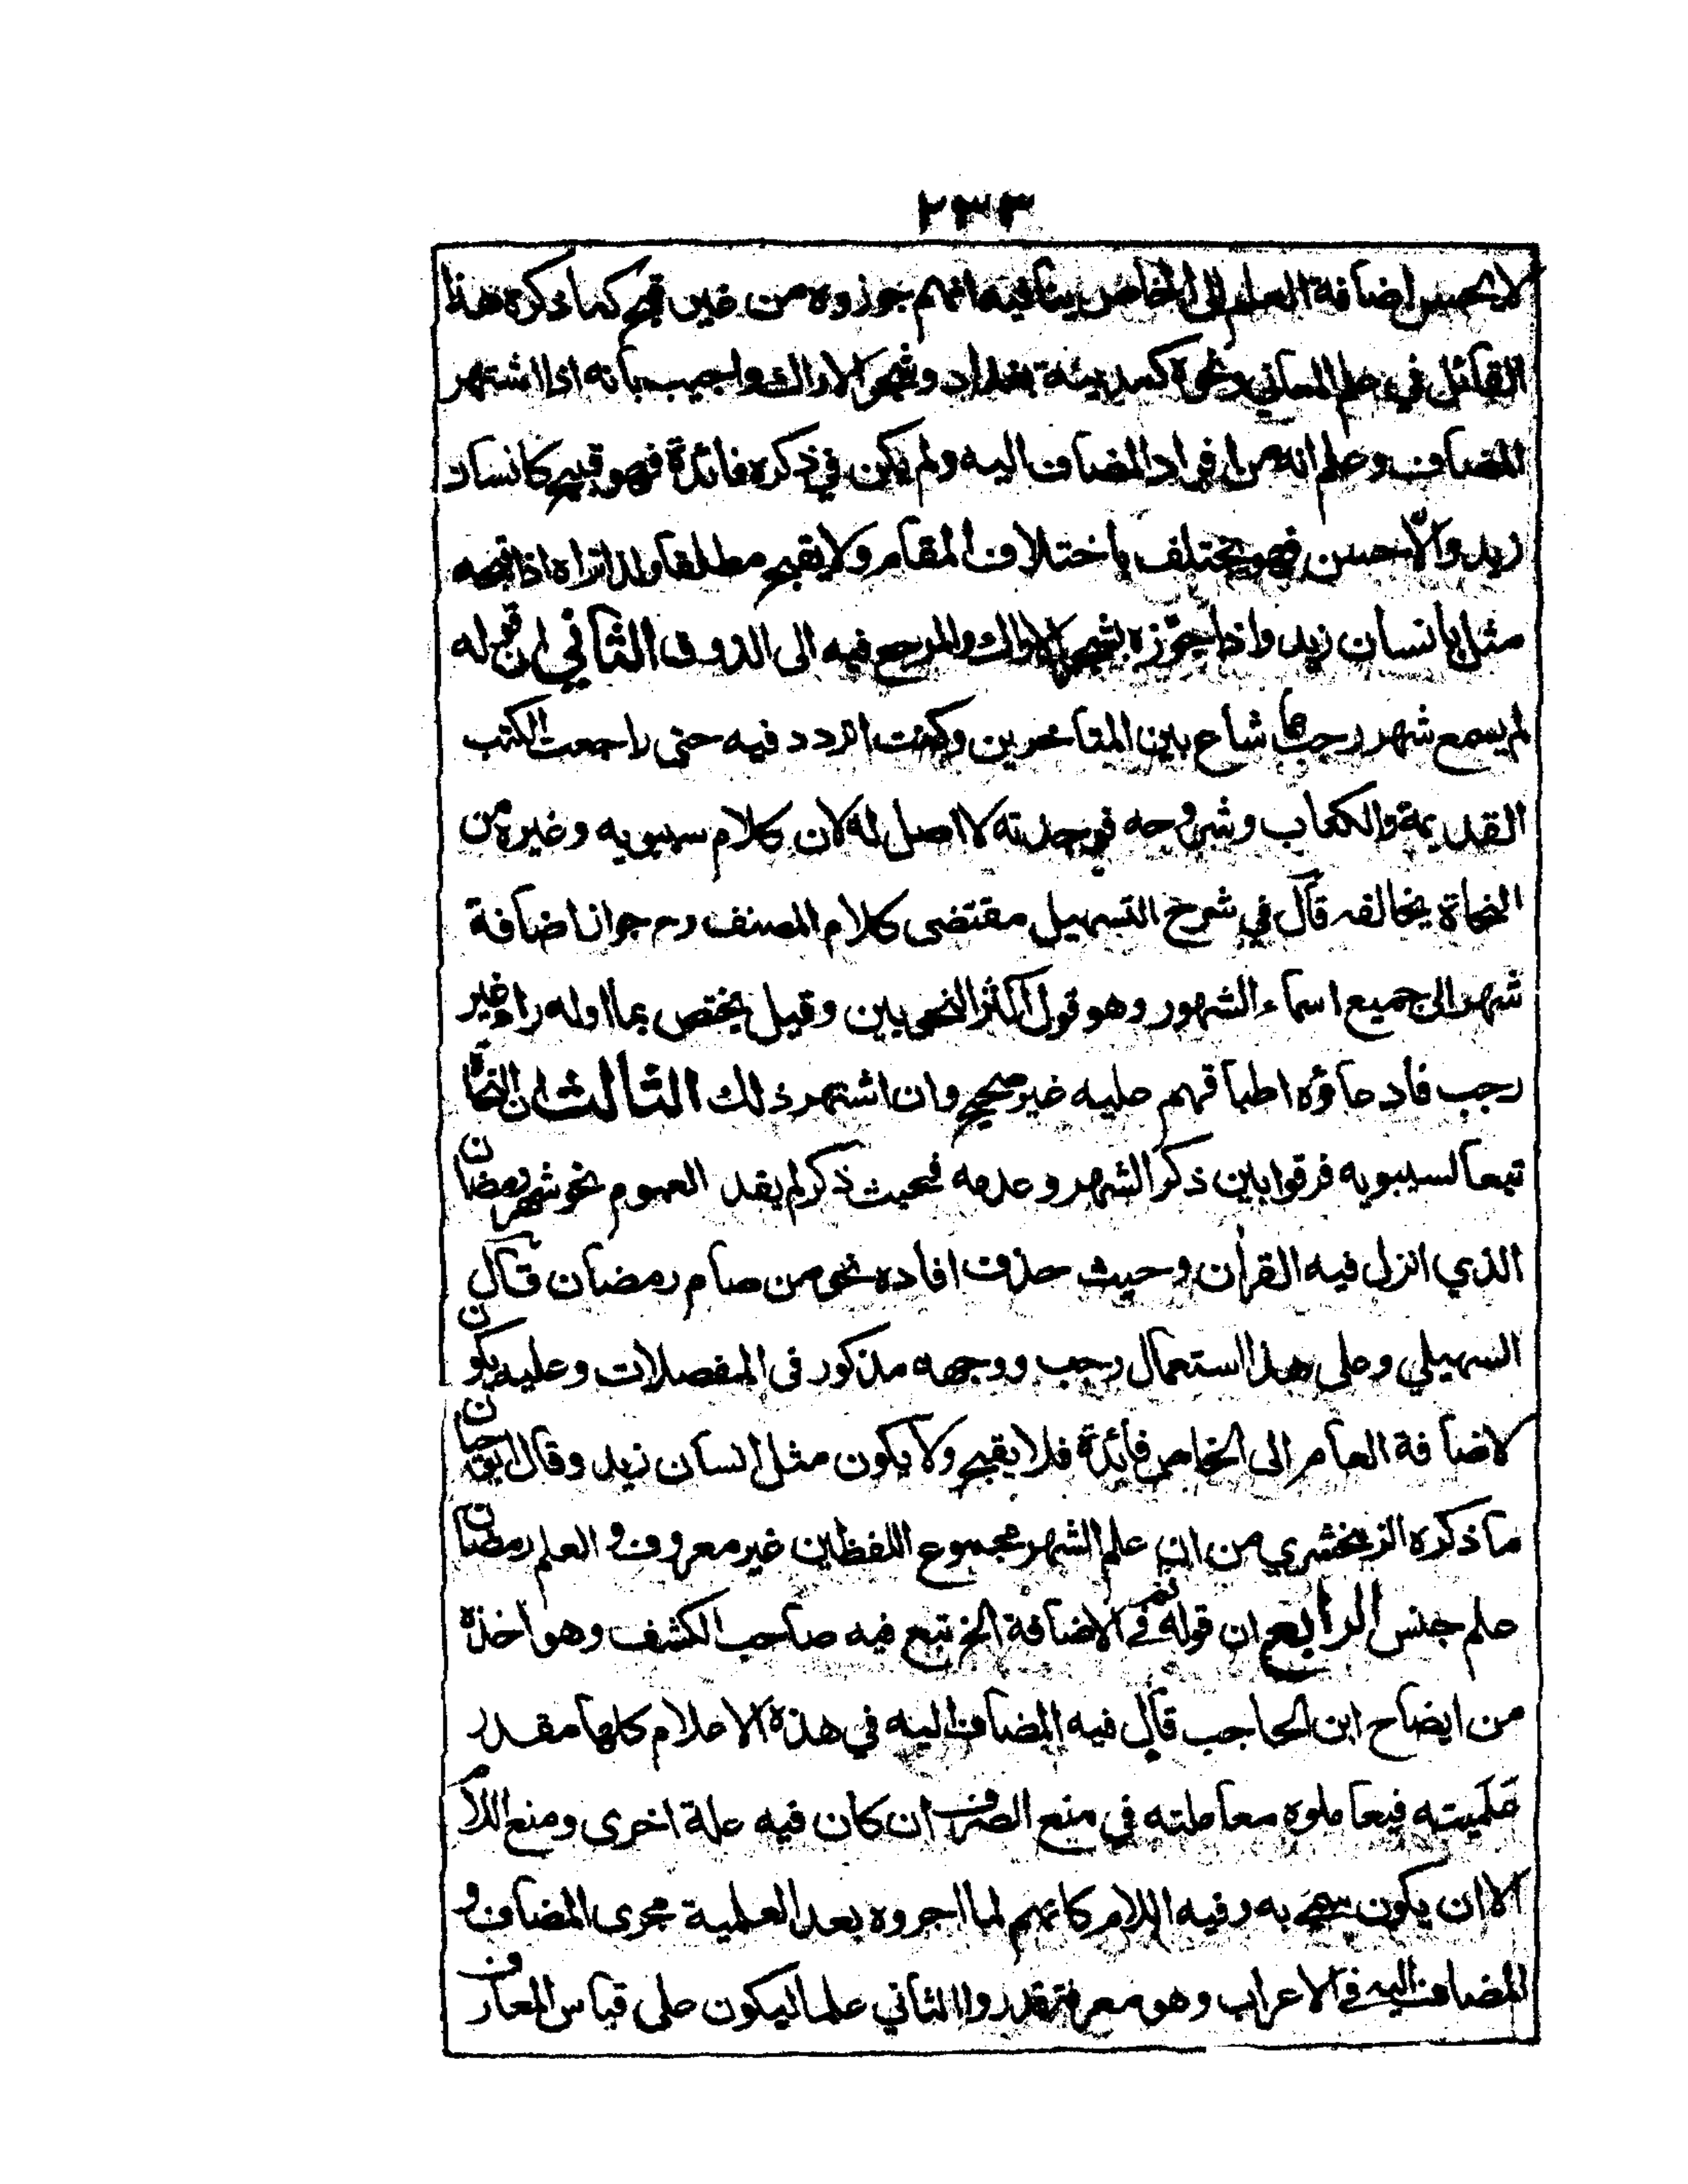 ٢٣٣
لا يحسن اضافة العام الى الخاص ينافيه انهم جوزوه من غير قبح كما ذكره هذا
القائل في علم المعاني ونحوه كمدينة بغداد وشجر الاراك واجيب بانه اذا اشتهر
المضاف وعلم انه من افراد المضاف اليه ولم يكن في ذكره فائدة فهو قبيح كانسان
زيد والا حسن فهو يختلف باختلاف المقام ولا يقبح مطلقا ولذا تراه اذا قبحه
مثل بانسان زيد واذا جوّزه بشجر الاراك والمرجع فيه الى الذوق الثاني ان قوله
لم يسمع شهر رجب مما شاع بين المتأخرين وكنت اتردد فيه حتى راجعت الكتب
القديمة والكتاب وشروحه فوجدته لا اصل له لان كلام سيبويه وغيره من
النحاة يخالفه قال في شرح التسهيل مقتضى كلام المصنف رح جواز اضافة
شهر الى جميع اسماء الشهور وهو قول اكثر النحويين وقيل يختص بما اوله راء غير
رجب فادعاؤه اطباقهم عليه غير صحيح وان اشتهر ذلك الثالث ان النحاة
تبعا لسيبويه فرقوا بين ذكر الشهر وعدمه فحيث ذكر لم يفد العموم نحو شهر رمضان
الذي انزل فيه القرأن وحيث حذف افاده نحو من صام رمضان قال
السهيلي وعلى هذا استعمال رجب ووجهه مذكور في المفصلات وعليه يكون
لاضافة العام الى الخاص فائدة فلا يقبح ولا يكون مثل انسان زيد وقال ابو حيان
ما ذكره الزمخشري من ان علم الشهر مجموع اللفظين غير معروف و العلم رمضان
علم جنس الرابع ان قوله ثم في الاضافة الخ تبع فيه صاحب الكشف وهو اخذه
من ايضاح ابن الحاجب قال فيه المضاف اليه في هذه الاعلام كلها مقدر
علميته فيعاملوه معاملته في منع الصرف ان كان فيه علة اخرى ومنع اللام
الا ان يكون سمي به وفيه اللام كانهم لما اجروه بعد العلمية مجرى المضاف و
المضاف اليه في الاعراب وهو معرفة قدروا الثاني علما ليكون على قياس المعارف